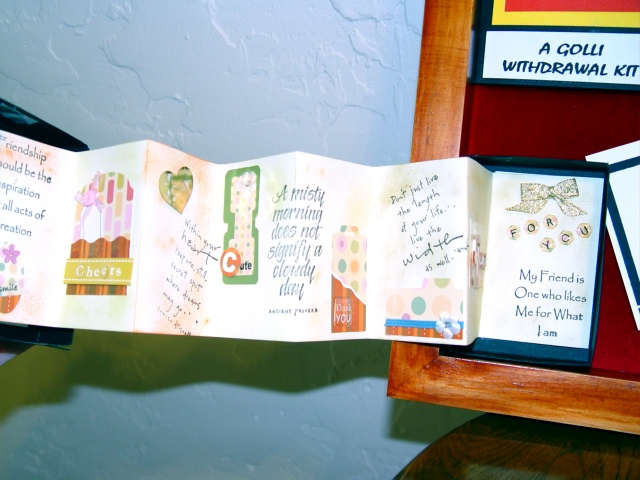 A GOLLI
WITHDRAWAL KIT
Friendship
ould be the
spiration
all acts of
reation
smile
Cheers
Within your
heart
Cute
A misty
morning
does not
signify a
cloudy
day
ANCIENT PROVERB
Thank
YOU
Don't just live
the length
of your life...
live the
width
as well...
FOR
YOU
My Friend is
One who likes
Me for What
I am